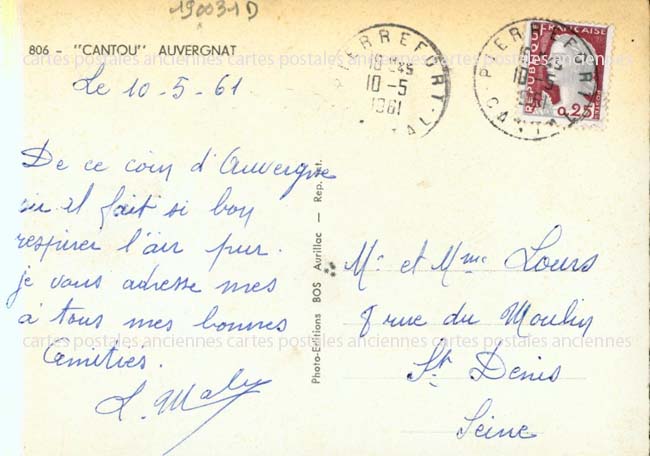 190031D
806 - "CANTOU" AUVERGNAT
Le 10-5-61
De ce coin d'Auvergne
où il fait si bon
respirer l'air pur.
je vous adresse mes
à tous mes bonnes
Amitiés.
L. Maly
PIERREFORT
10-5
1961
CANTAL
PIERREFORT
1961
CANTAL
RÉPUBLIQUE FRANÇAISE
0,25
Photo-Editions BOS Aurillac — Rep. Int.
Mr et Mme Louis
8 rue du Moulin
St Denis
Seine
cartes postales anciennes cartes postales anciennes cartes postales anciennes
cartes postales anciennes cartes postales anciennes cartes postales anciennes